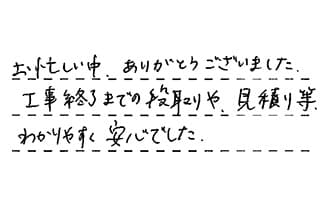 お忙しい中、ありがとうございました。
工事終了までの段取りや、見積り等、
わかりやすく安心でした。